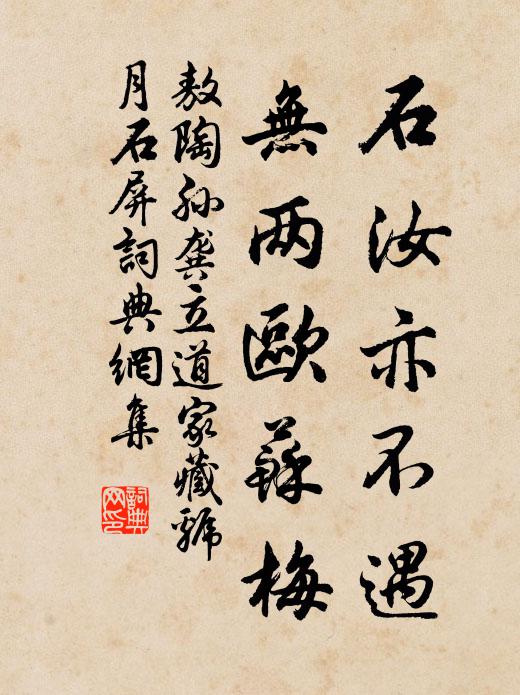 石汝亦不遇
無两歐蘇梅
敖陶孙龚立道家藏號
月石屏詞典網集
詞典网印